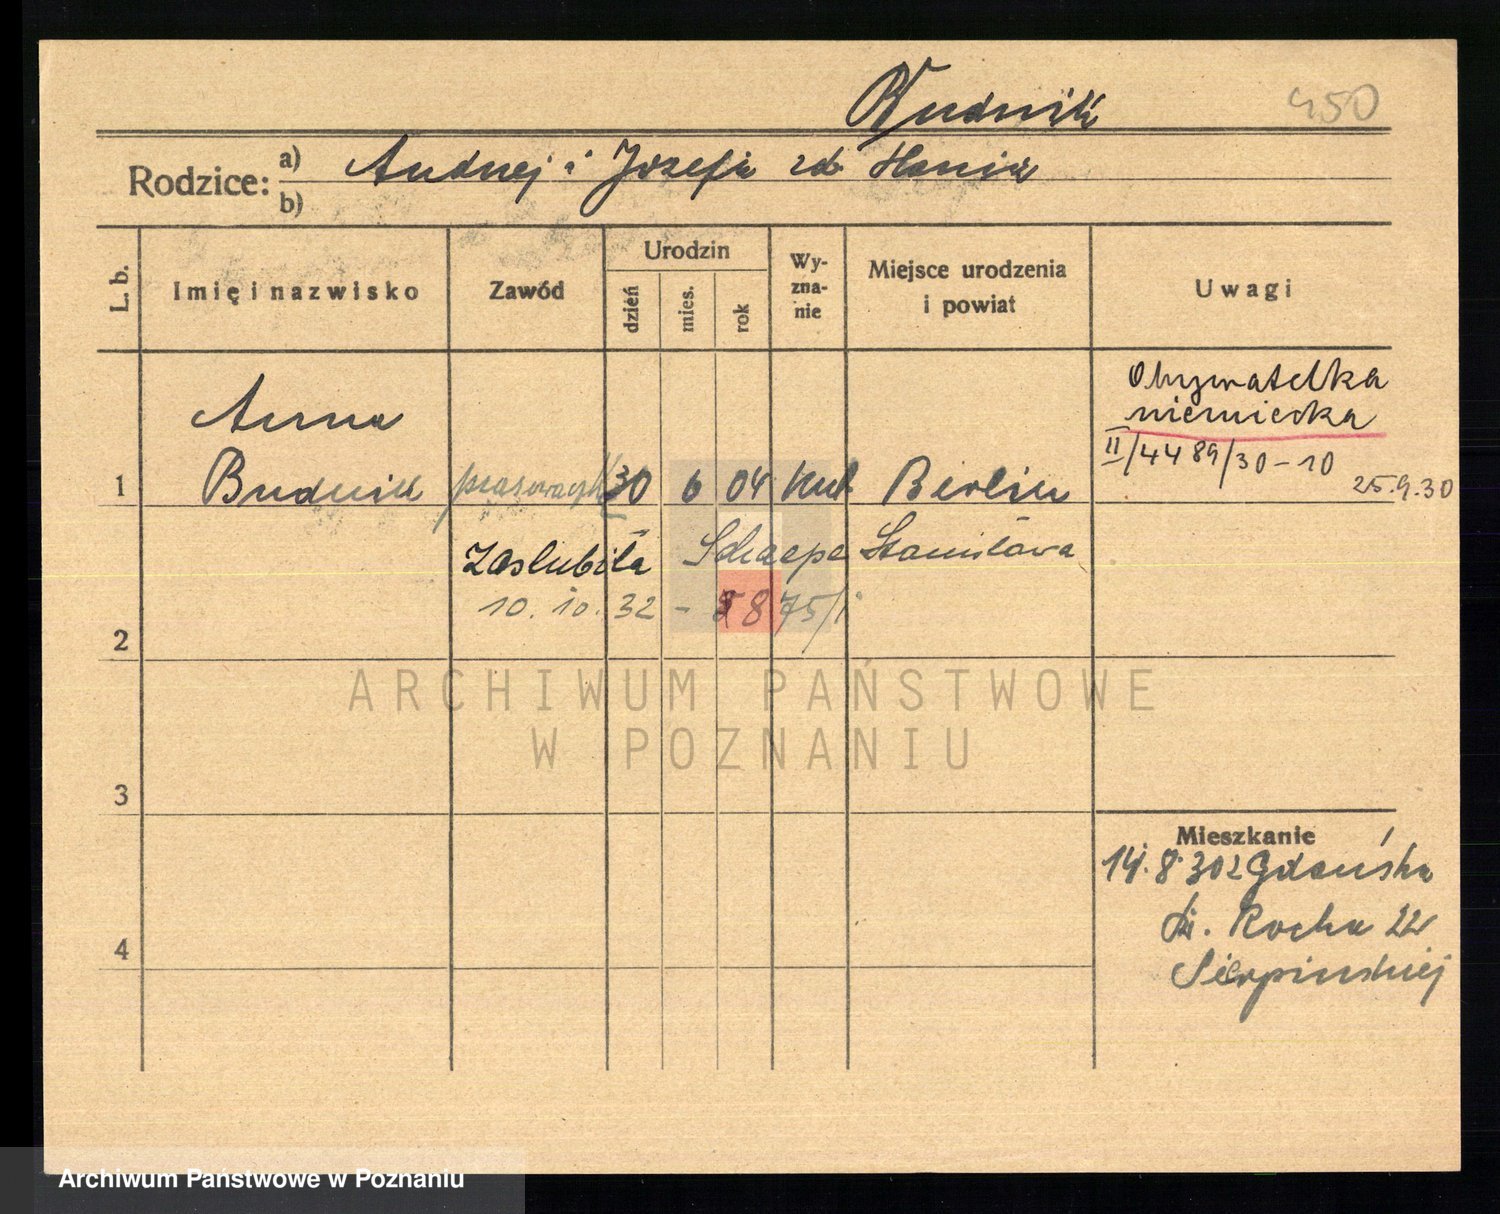 Budnik
450
Rodzice: a) Andrzej i Józefa zd. Haniz
b)
L. b.
Imię i nazwisko
Zawód
Urodzin
dzień mies. rok
Wy-
zna-
nie
Miejsce urodzenia
i powiat
Uwagi
Anna
1 Budnik 30 6 04 Berlin
Obywatelka
niemiecka
II/4489/30-10
25.9.30
Zaslubiła Schaepe Stanisława
10. 10. 32 - 8875/i
2
ARCHIWUM PAŃSTWOWE
W POZNANIU
3
4
Mieszkanie
14.8.30 z Gdańska
Rocha 22
Sierpinskiej
Archiwum Państwowe w Poznaniu